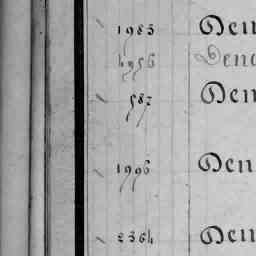 1983 Den
4956 Den
587 Den
1996 Den
2364 Den